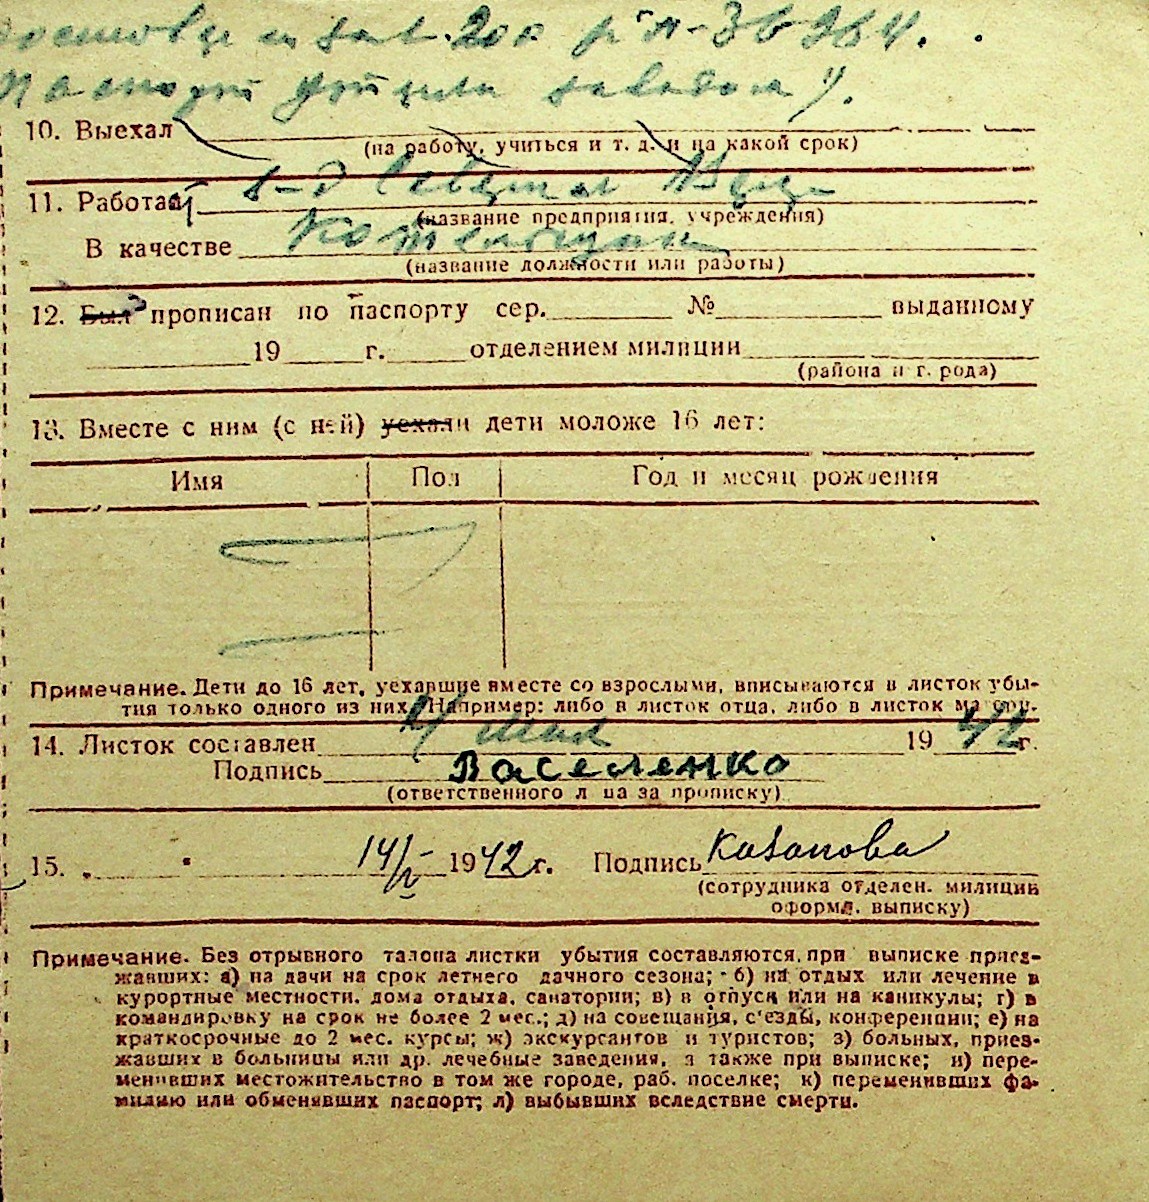 10. Выехал
(на работу, учиться и т. д. и на какой срок)
11. Работал
(название предприятия, учреждения)
В качестве
(название должности или работы)
12. Был прописан по паспорту сер. № выданному
19 г. отделением милиции
(района и города)
13. Вместе с ним (с ней) уехали дети моложе 16 лет:
Имя Пол Год и месяц рождения
Примечание. Дети до 16 лет, уехавшие вместе со взрослыми, вписываются в листок убы-
тия только одного из них. Например: либо в листок отца, либо в листок матери.
14. Листок составлен мая 19 42 г.
Подпись Василенко
(ответственного лица за прописку)
15. 14/V 1942 г. Подпись Казанова
(сотрудника отделен. милиции
оформл. выписку)
Примечание. Без отрывного талона листки убытия составляются при выписке приез-
жавших: а) на дачи на срок летнего дачного сезона; б) на отдых или лечение в
курортные местности, дома отдыха, санатории; в) в отпуск или на каникулы; г) в
командировку на срок не более 2 мес.; д) на совещания, с'езды, конференции; е) на
краткосрочные до 2 мес. курсы; ж) экскурсантов и туристов; з) больных, приез-
жавших в больницы или др. лечебные заведения, а также при выписке; и) пере-
менивших местожительство в том же городе, раб. поселке; к) переменивших фа-
милию или обменявших паспорт; л) выбывших вследствие смерти.